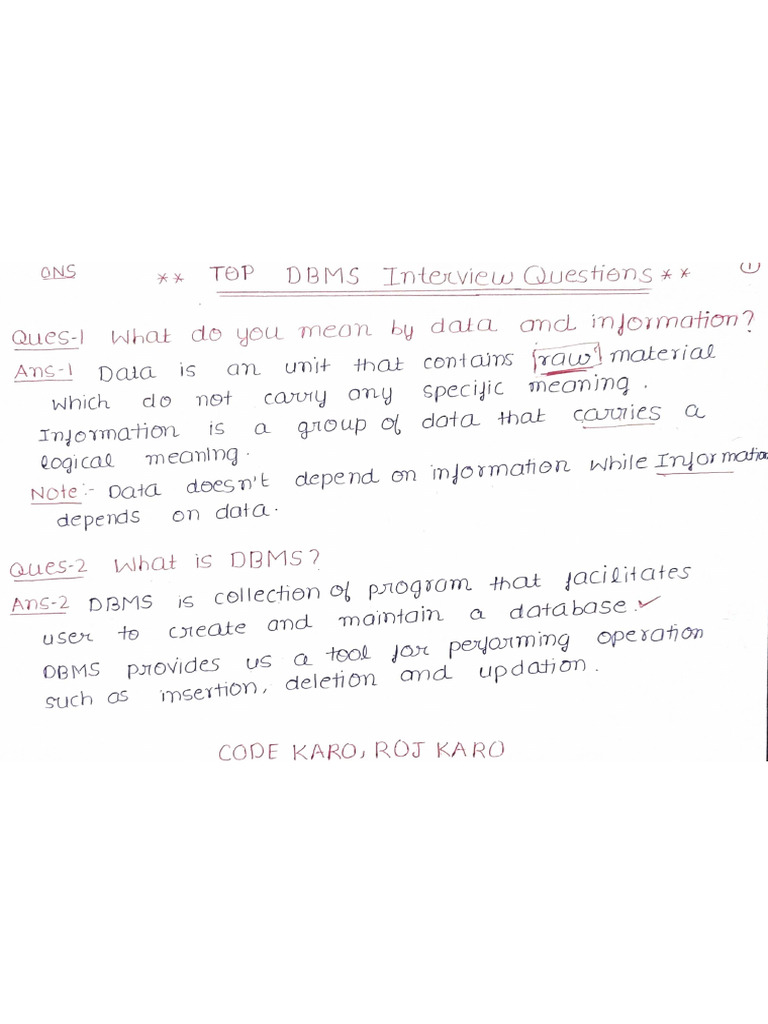 ONS ** TOP DBMS Interview Questions ** 1
Ques-1 What do you mean by data and information?
Ans-1 Data is an unit that contains "raw" material
which do not carry any specific meaning.
Information is a group of data that carries a
logical meaning.
Note:- Data doesn't depend on information while Information
depends on data.
Ques-2 What is DBMS?
Ans-2 DBMS is collection of program that facilitates
user to create and maintain a database.
DBMS provides us a tool for performing operation
such as insertion, deletion and updation.
CODE KARO, ROJ KARO